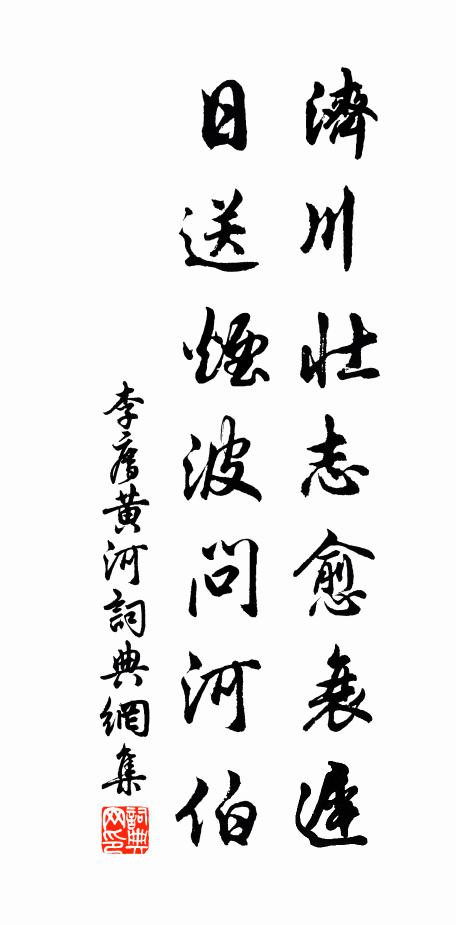 濟川壯志愈衰遲
日送煙波問河伯
李膺黃河詞典網集
詞典網印